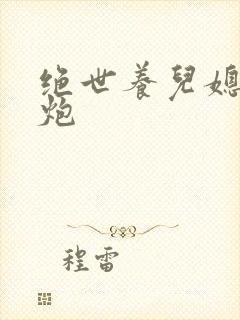 绝世养兒媳
炮
程雷